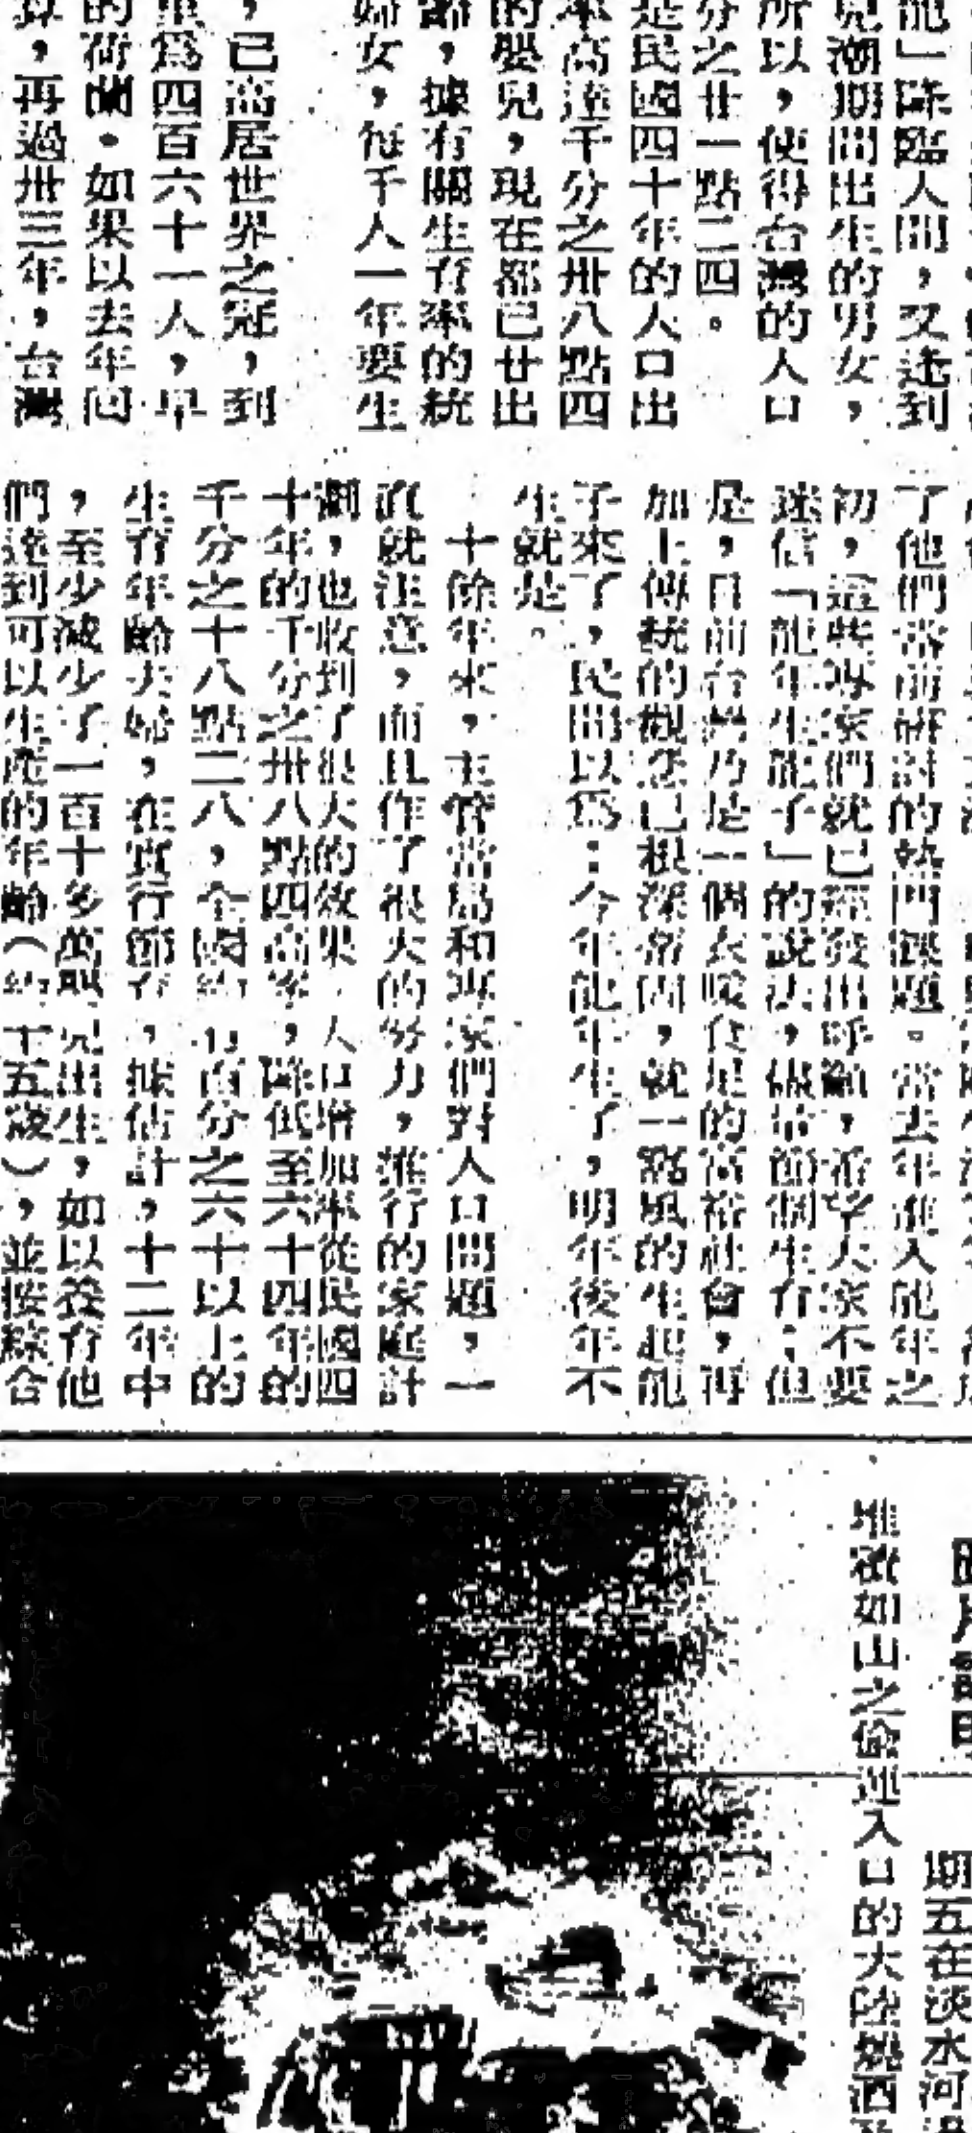 龍」降臨人間，又逢到
兒潮期間出生的男女，
所以，使得台灣的人口
分之廿一點二四。
是民國四十年的人口出
率高達千分之卅八點四
的嬰兒，現在都已廿出
齡，據有關生育率的統
婦女，每千人一年要生
，已高居世界之冠，到
為四百六十一人，早
的荷蘭。如果以去年
算，再過卅三年，台灣
了他們當前研討的熱門課題。當去年進入龍年之
初，這些專家們就已經發出呼籲，希望大家不要
迷信「龍年生龍子」的說法，儘量節制生育；但
是，目前台灣乃是一個衣暖食足的富裕社會，再
加上傳統的觀念已根深蒂固，就一窩風的生起龍
子來了，民間以為：今年龍年生了，明年後年不
生就是。
十餘年來，主管當局和專家們對人口問題，一
直就注意，而且作了很大的努力，推行的家庭計
劃，也收到了很大的效果，人口增加率從民國四
十年的千分之卅八點四高率，降低至六十四年的
千分之十八點二八，全國約有百分之六十以上的
生育年齡夫婦，在實行節育，據估計，十二年中
，至少減少了一百十多萬嬰兒出生，如以養育他
們達到可以生產的年齡（約十五歲），並按綜合
圖片說明
堆積如山之偷運入口的大陸燒酒
期五在淡水河